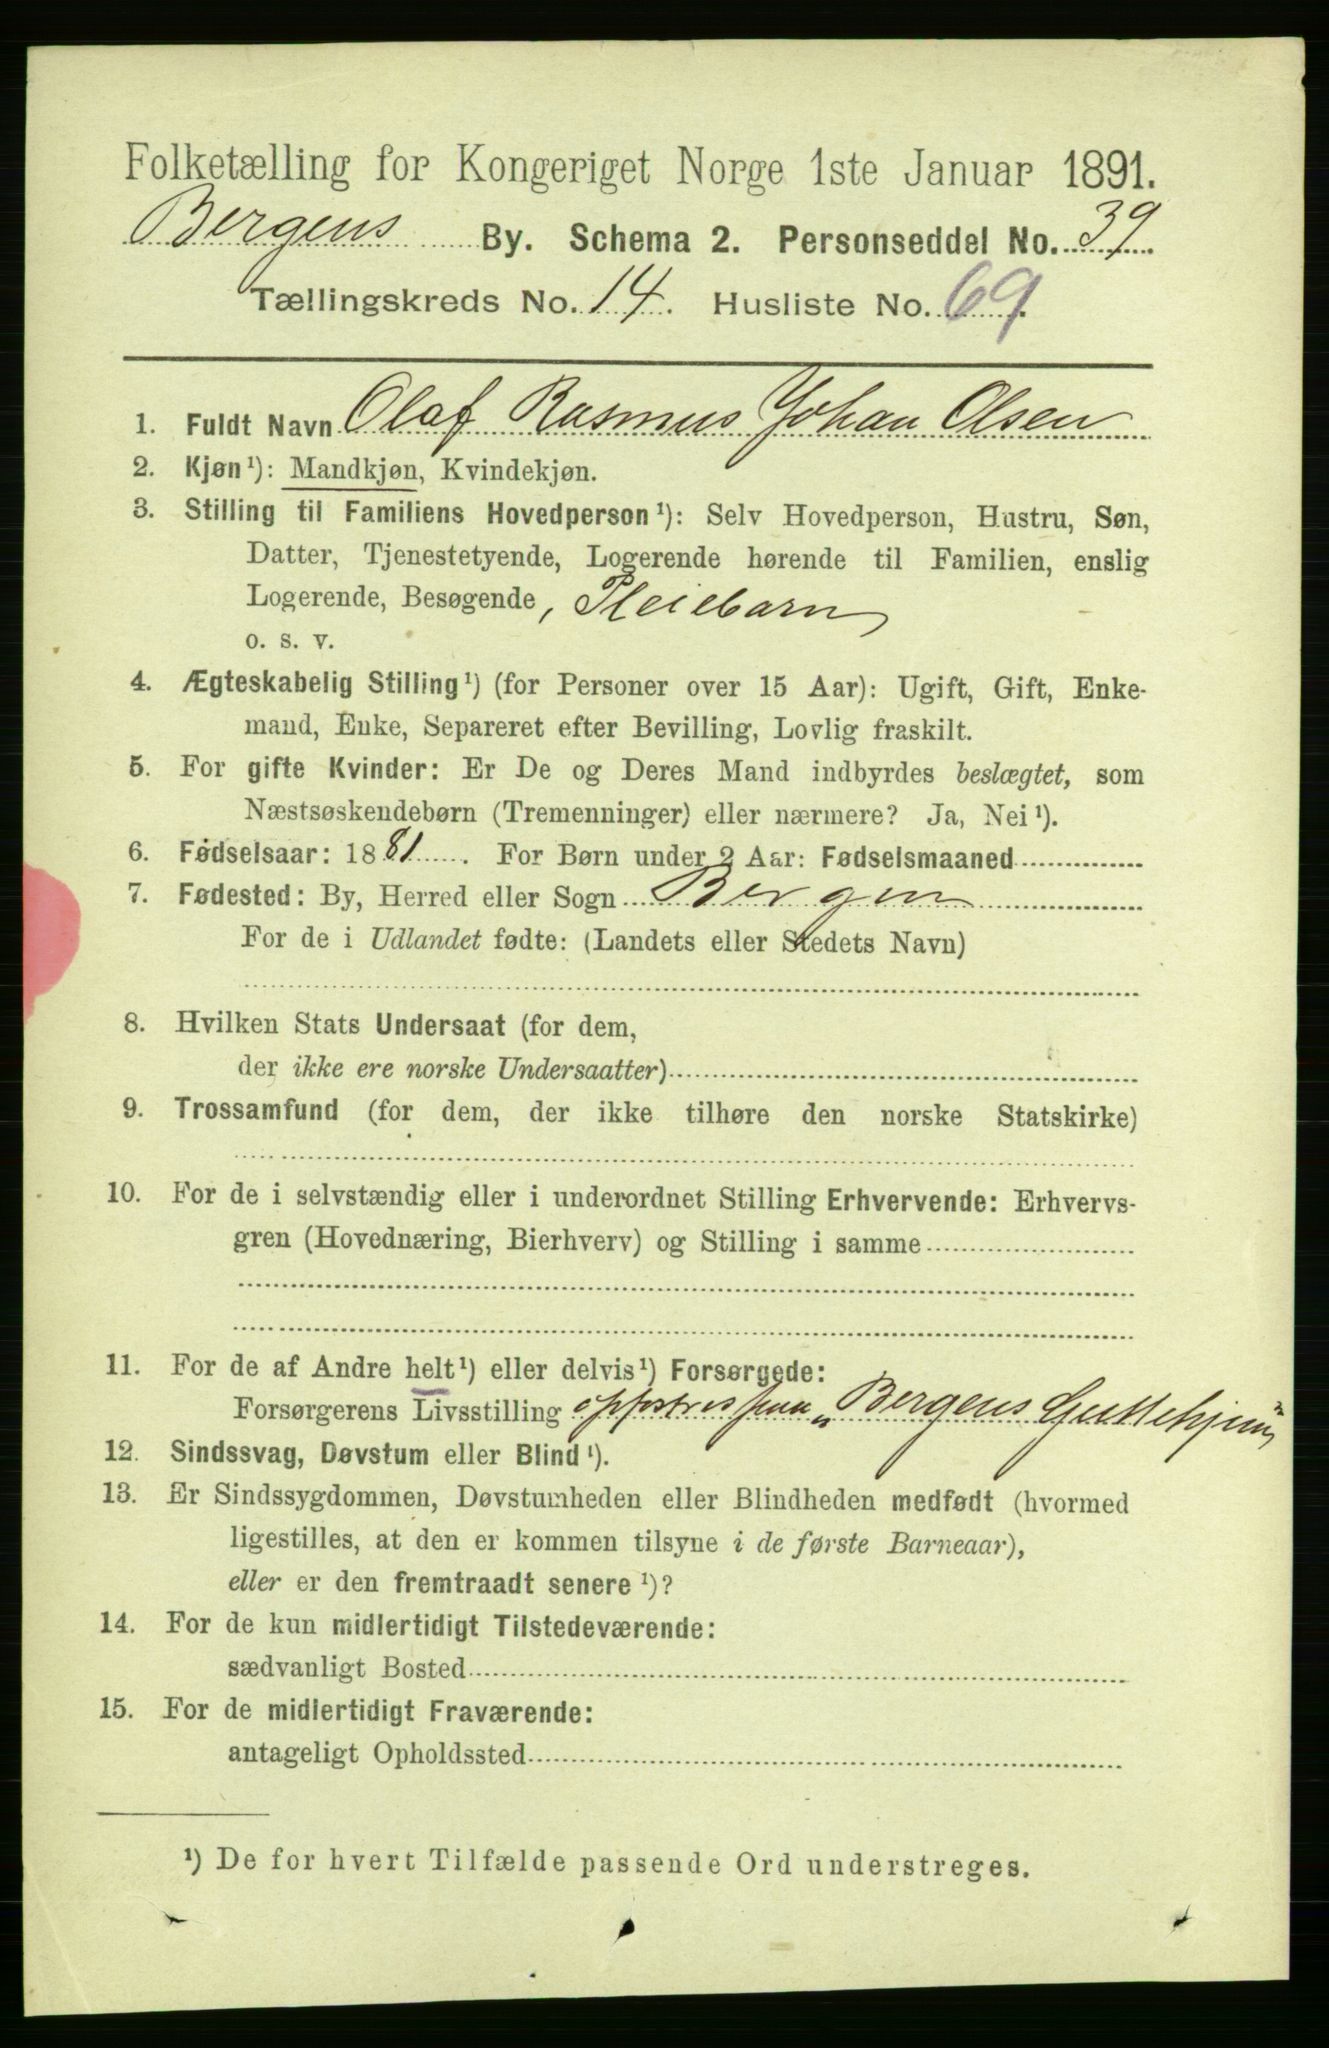 Folketælling for Kongeriget Norge 1ste Januar 1891.
Bergens By. Schema 2. Personseddel No. 39.
Tællingskreds No. 14. Husliste No. 69.
1. Fuldt Navn Olaf Rasmus Johan Olsen
2. Kjøn¹): Mandkjøn, Kvindekjøn.
3. Stilling til Familiens Hovedperson¹): Selv Hovedperson, Hustru, Søn,
Datter, Tjenestetyende, Logerende hørende til Familien, enslig
Logerende, Besøgende, Pleiebarn
o. s. v.
4. Ægteskabelig Stilling¹) (for Personer over 15 Aar): Ugift, Gift, Enke-
mand, Enke, Separeret efter Bevilling, Lovlig fraskilt.
5. For gifte Kvinder: Er De og Deres Mand indbyrdes beslægtet, som
Næstsøskendebørn (Tremenninger) eller nærmere? Ja, Nei¹).
6. Fødselsaar: 1881. For Børn under 2 Aar: Fødselsmaaned
7. Fødested: By, Herred eller Sogn Bergen
For de i Udlandet fødte: (Landets eller Stedets Navn)
8. Hvilken Stats Undersaat (for dem,
der ikke ere norske Undersaatter)
9. Trossamfund (for dem, der ikke tilhøre den norske Statskirke)
10. For de i selvstændig eller i underordnet Stilling Erhvervende: Erhvervs-
gren (Hovednæring, Bierhverv) og Stilling i samme
11. For de af Andre helt¹) eller delvis¹) Forsørgede:
Forsørgerens Livsstilling opfostres paa „Bergens Guttehjem"
12. Sindssvag, Døvstum eller Blind¹).
13. Er Sindssygdommen, Døvstumheden eller Blindheden medfødt (hvormed
ligestilles, at den er kommen tilsyne i de første Barneaar),
eller er den fremtraadt senere¹)?
14. For de kun midlertidigt Tilstedeværende:
sædvanligt Bosted
15. For de midlertidigt Fraværende:
antageligt Opholdssted
¹) De for hvert Tilfælde passende Ord understreges.